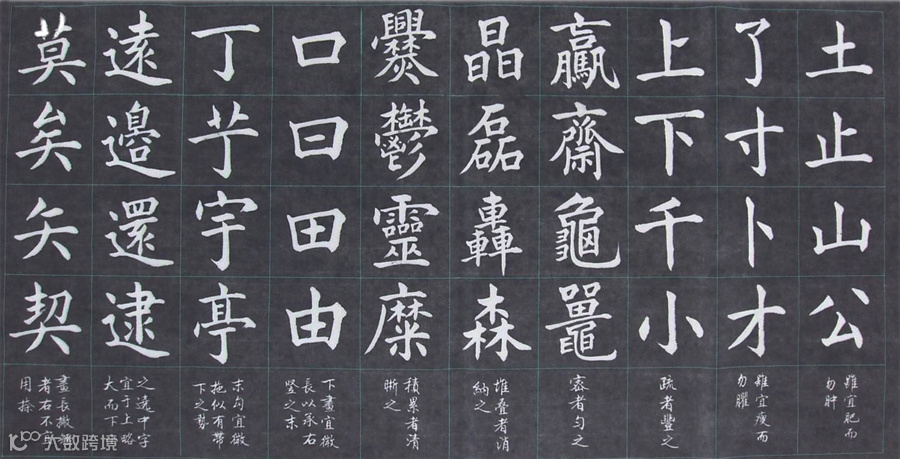 土止山公
雖宜肥而
勿肿
了寸卜才
雖宜瘦而
勿臞
上下千小
疏者豐之
驘齋龜鼉
密者勻之
晶磊轟森
堆疊者消
納之
爨鬱靈糜
積累者清
晰之
口曰田由
下畫宜微
長以承右
豎之末
丁艼宇亭
末勾宜微
拖似有帶
下之勢
遠邊還逮
之遠中字
宜于上略
大而下
莫矣矢契
畫長撇短
者右不宜
用捺
大数跨境